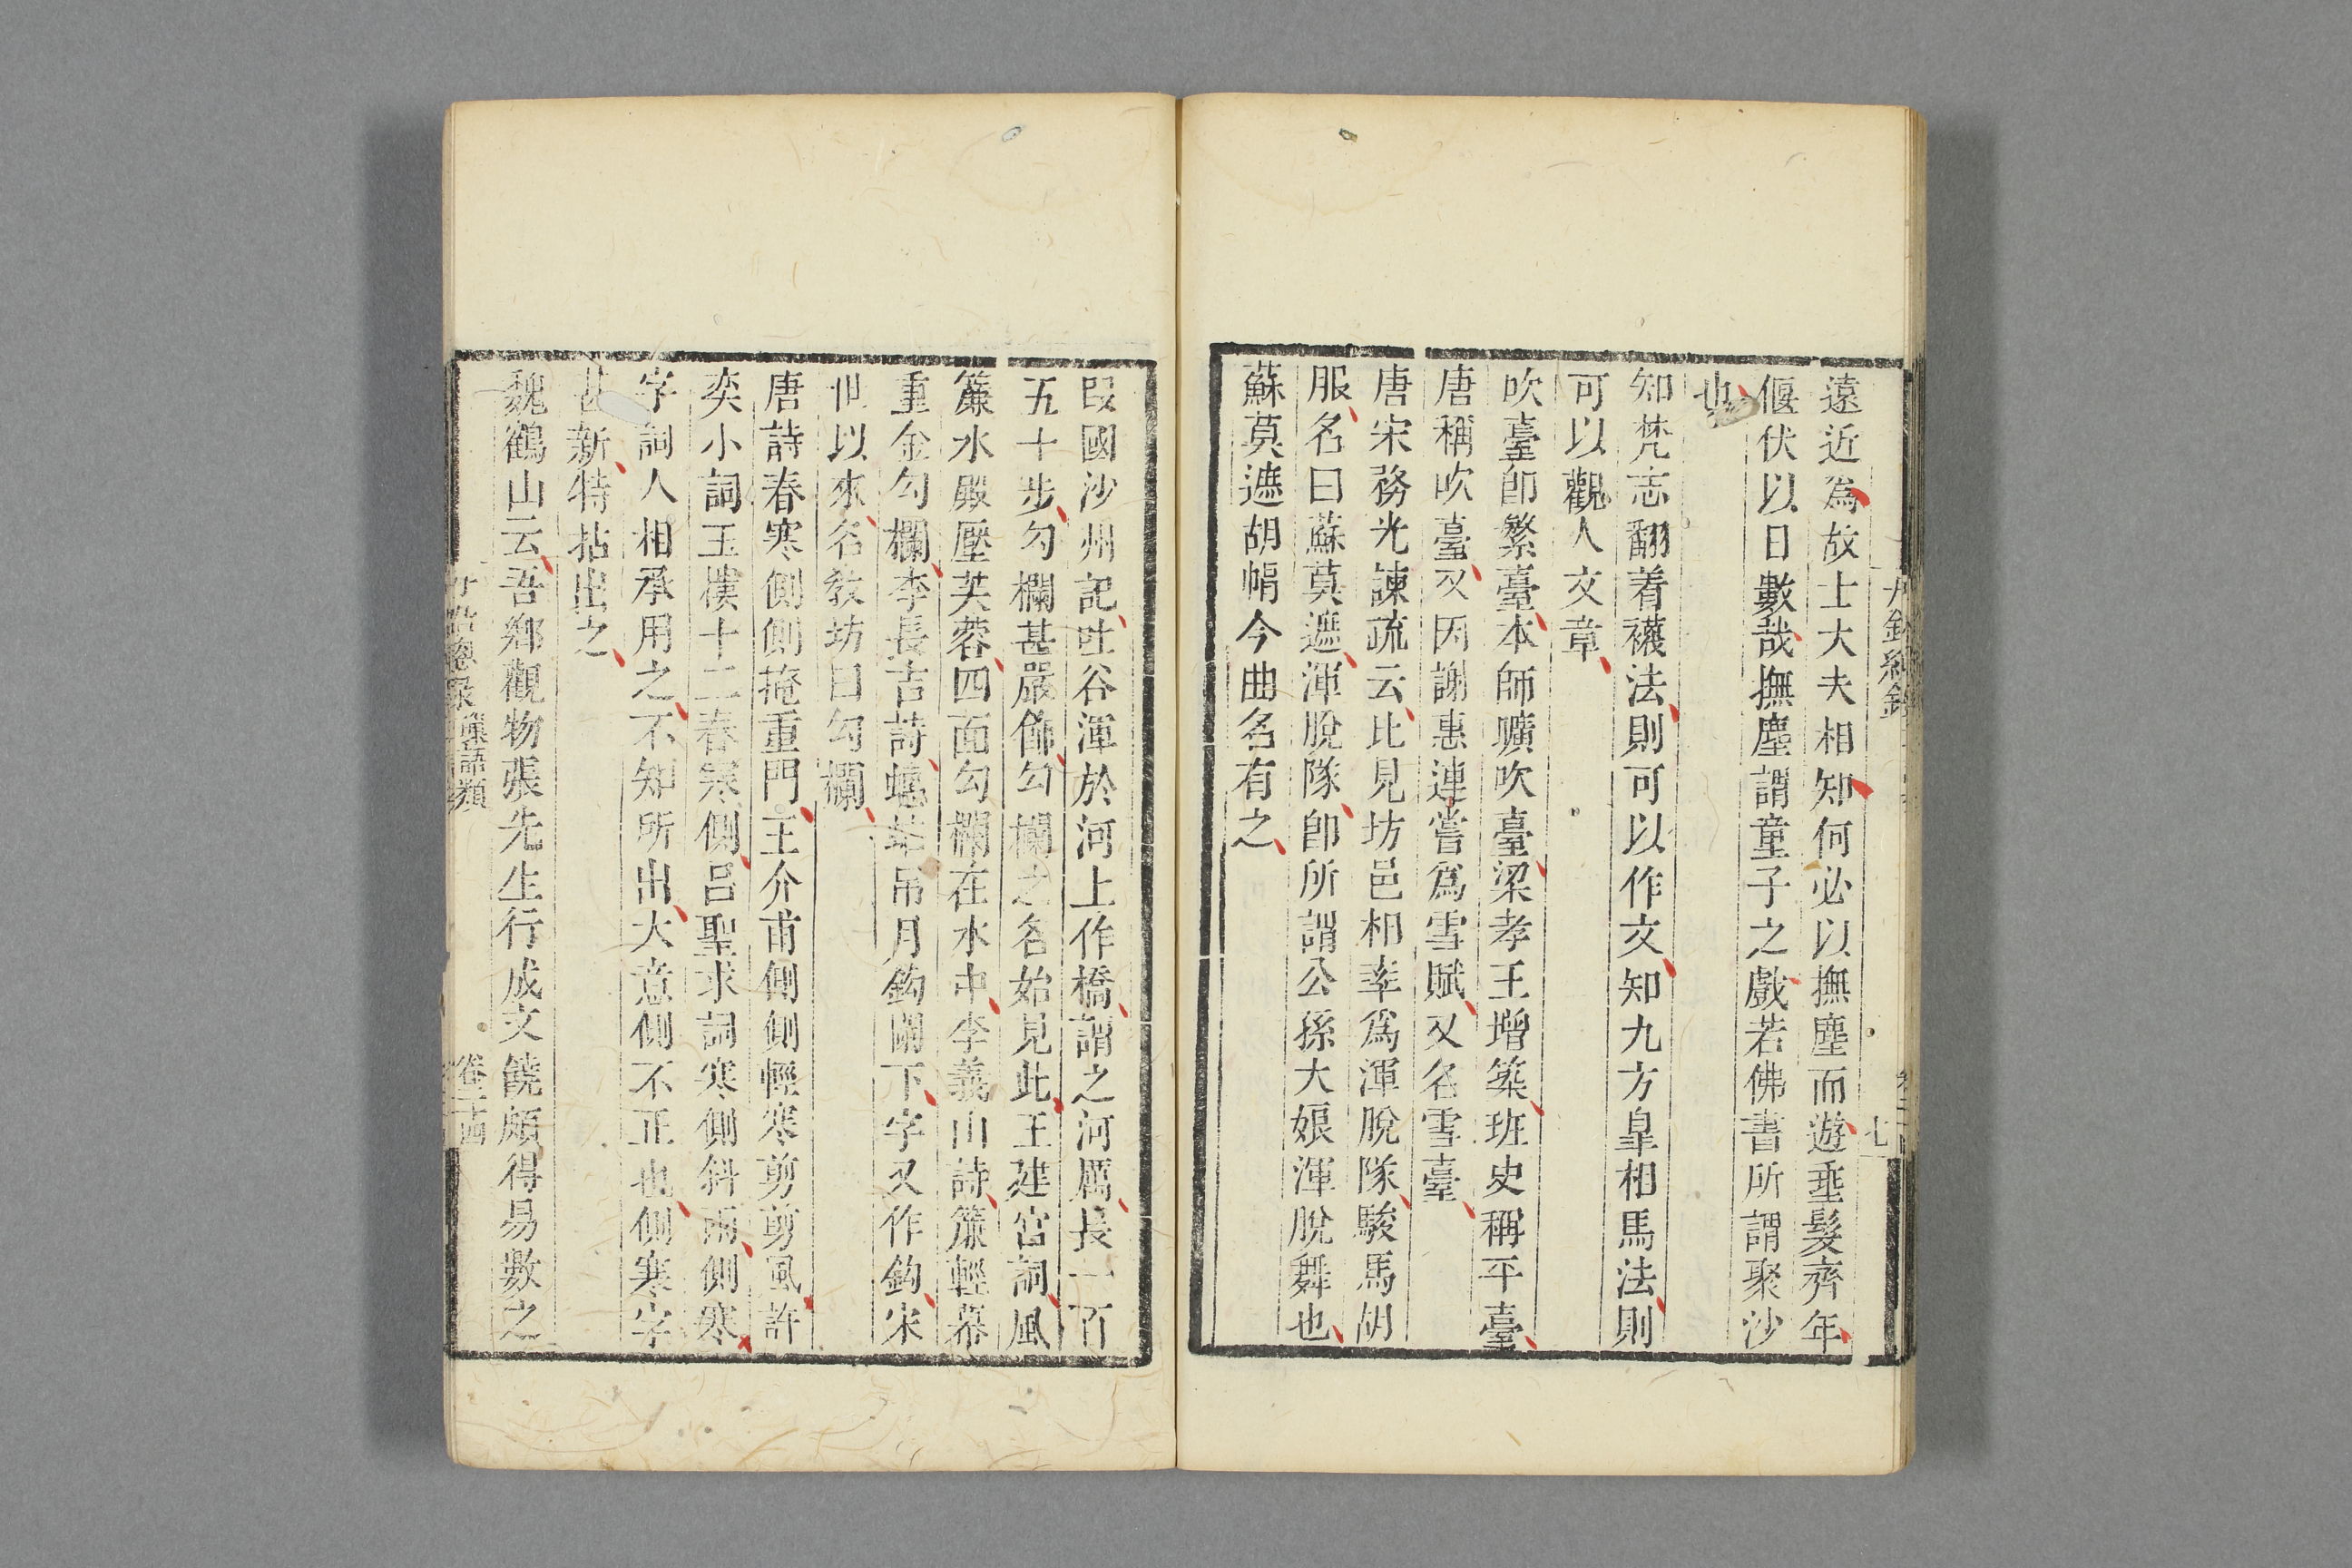 遠近爲故士大夫相知何必以撫塵而遊垂髮齊年
偃伏以日數哉撫塵謂童子之戲若佛書所謂聚沙
也
知梵志翻着襪法則可以作文知九方臯相馬法則
可以觀人文章
吹臺卽繁臺本師曠吹臺梁孝王增築班史稱平臺
唐稱吹臺又因謝惠連嘗爲雪賦又名雪臺
唐宋務光諫疏云比見坊邑相率爲渾脫隊駿馬胡
服名曰蘇莫遮渾脫隊卽所謂公孫大娘渾脫舞也
蘇莫遮胡帽今曲名有之
段國沙州記吐谷渾於河上作橋謂之河厲長一百
五十步勾欄甚嚴飾勾欄之名始見此王建宮詞風
簾水殿壓芙蓉四面勾欄在水中李義山詩簾輕幕
重金勾欄李長吉詩蟪蛄吊月鈎闌下字又作鈎宋
世以來名教坊曰勾欄
唐詩春寒側側掩重門王介甫側側輕寒剪剪風許
奕小詞玉樓十二春寒側呂聖求詞寒側斜雨側寒
字詞人相承用之不知所出大意側不正也側寒字
甚新特拈出之
魏鶴山云吾鄉觀物張先生行成文饒頗得易數之
丹鉛總錄 瑣語類 卷二十四
七